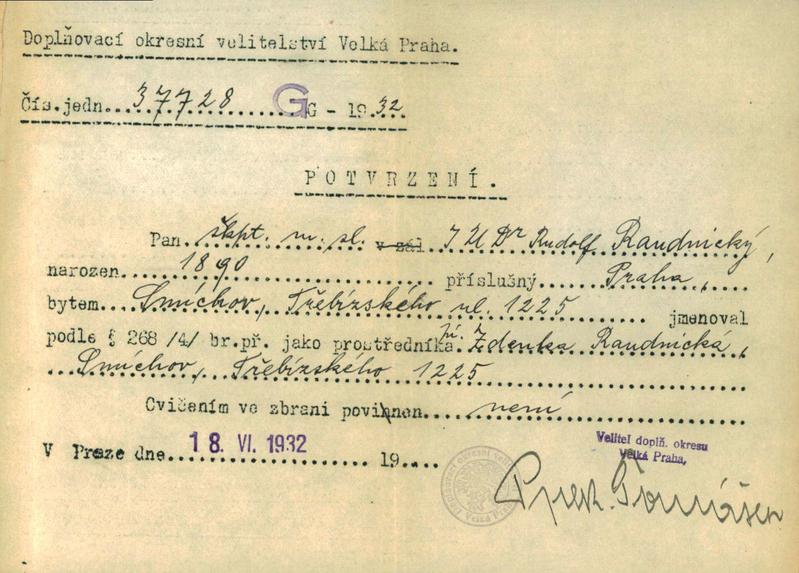 Doplňovací okresní velitelství Velká Praha.
Čís.jedn. 37728 G G - 1932
POTVRZENÍ.
Pan škpt. m. sl. v zál JUDr Rudolf Raudnický,
narozen 1890 příslušný Praha,
bytem Smíchov, Třebízského ul. 1225 jmenoval
podle § 268 /4/ br.př. jako prostředníka: pí Zdenka Raudnická,
Smíchov, Třebízského 1225
Cvičením ve zbrani povinen není
V Praze dne 18. VI. 1932 19
Velitel doplň. okresu
Velká Praha,